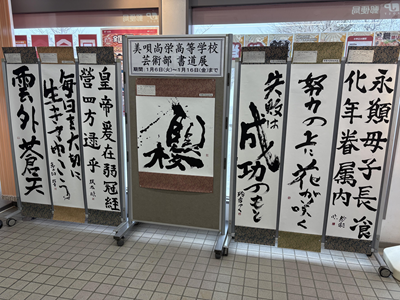 美唄尚栄高等学校
芸術部 書道展
期間：1月6日(火)～1月16日(金)まで
永願母子長飡
化年眷属内
努力の上に花が咲く
失敗は
成功のもと
皇帝爰在弱冠経
營四方逮乎
毎日を大切に
生きてゆこう。
雲外蒼天